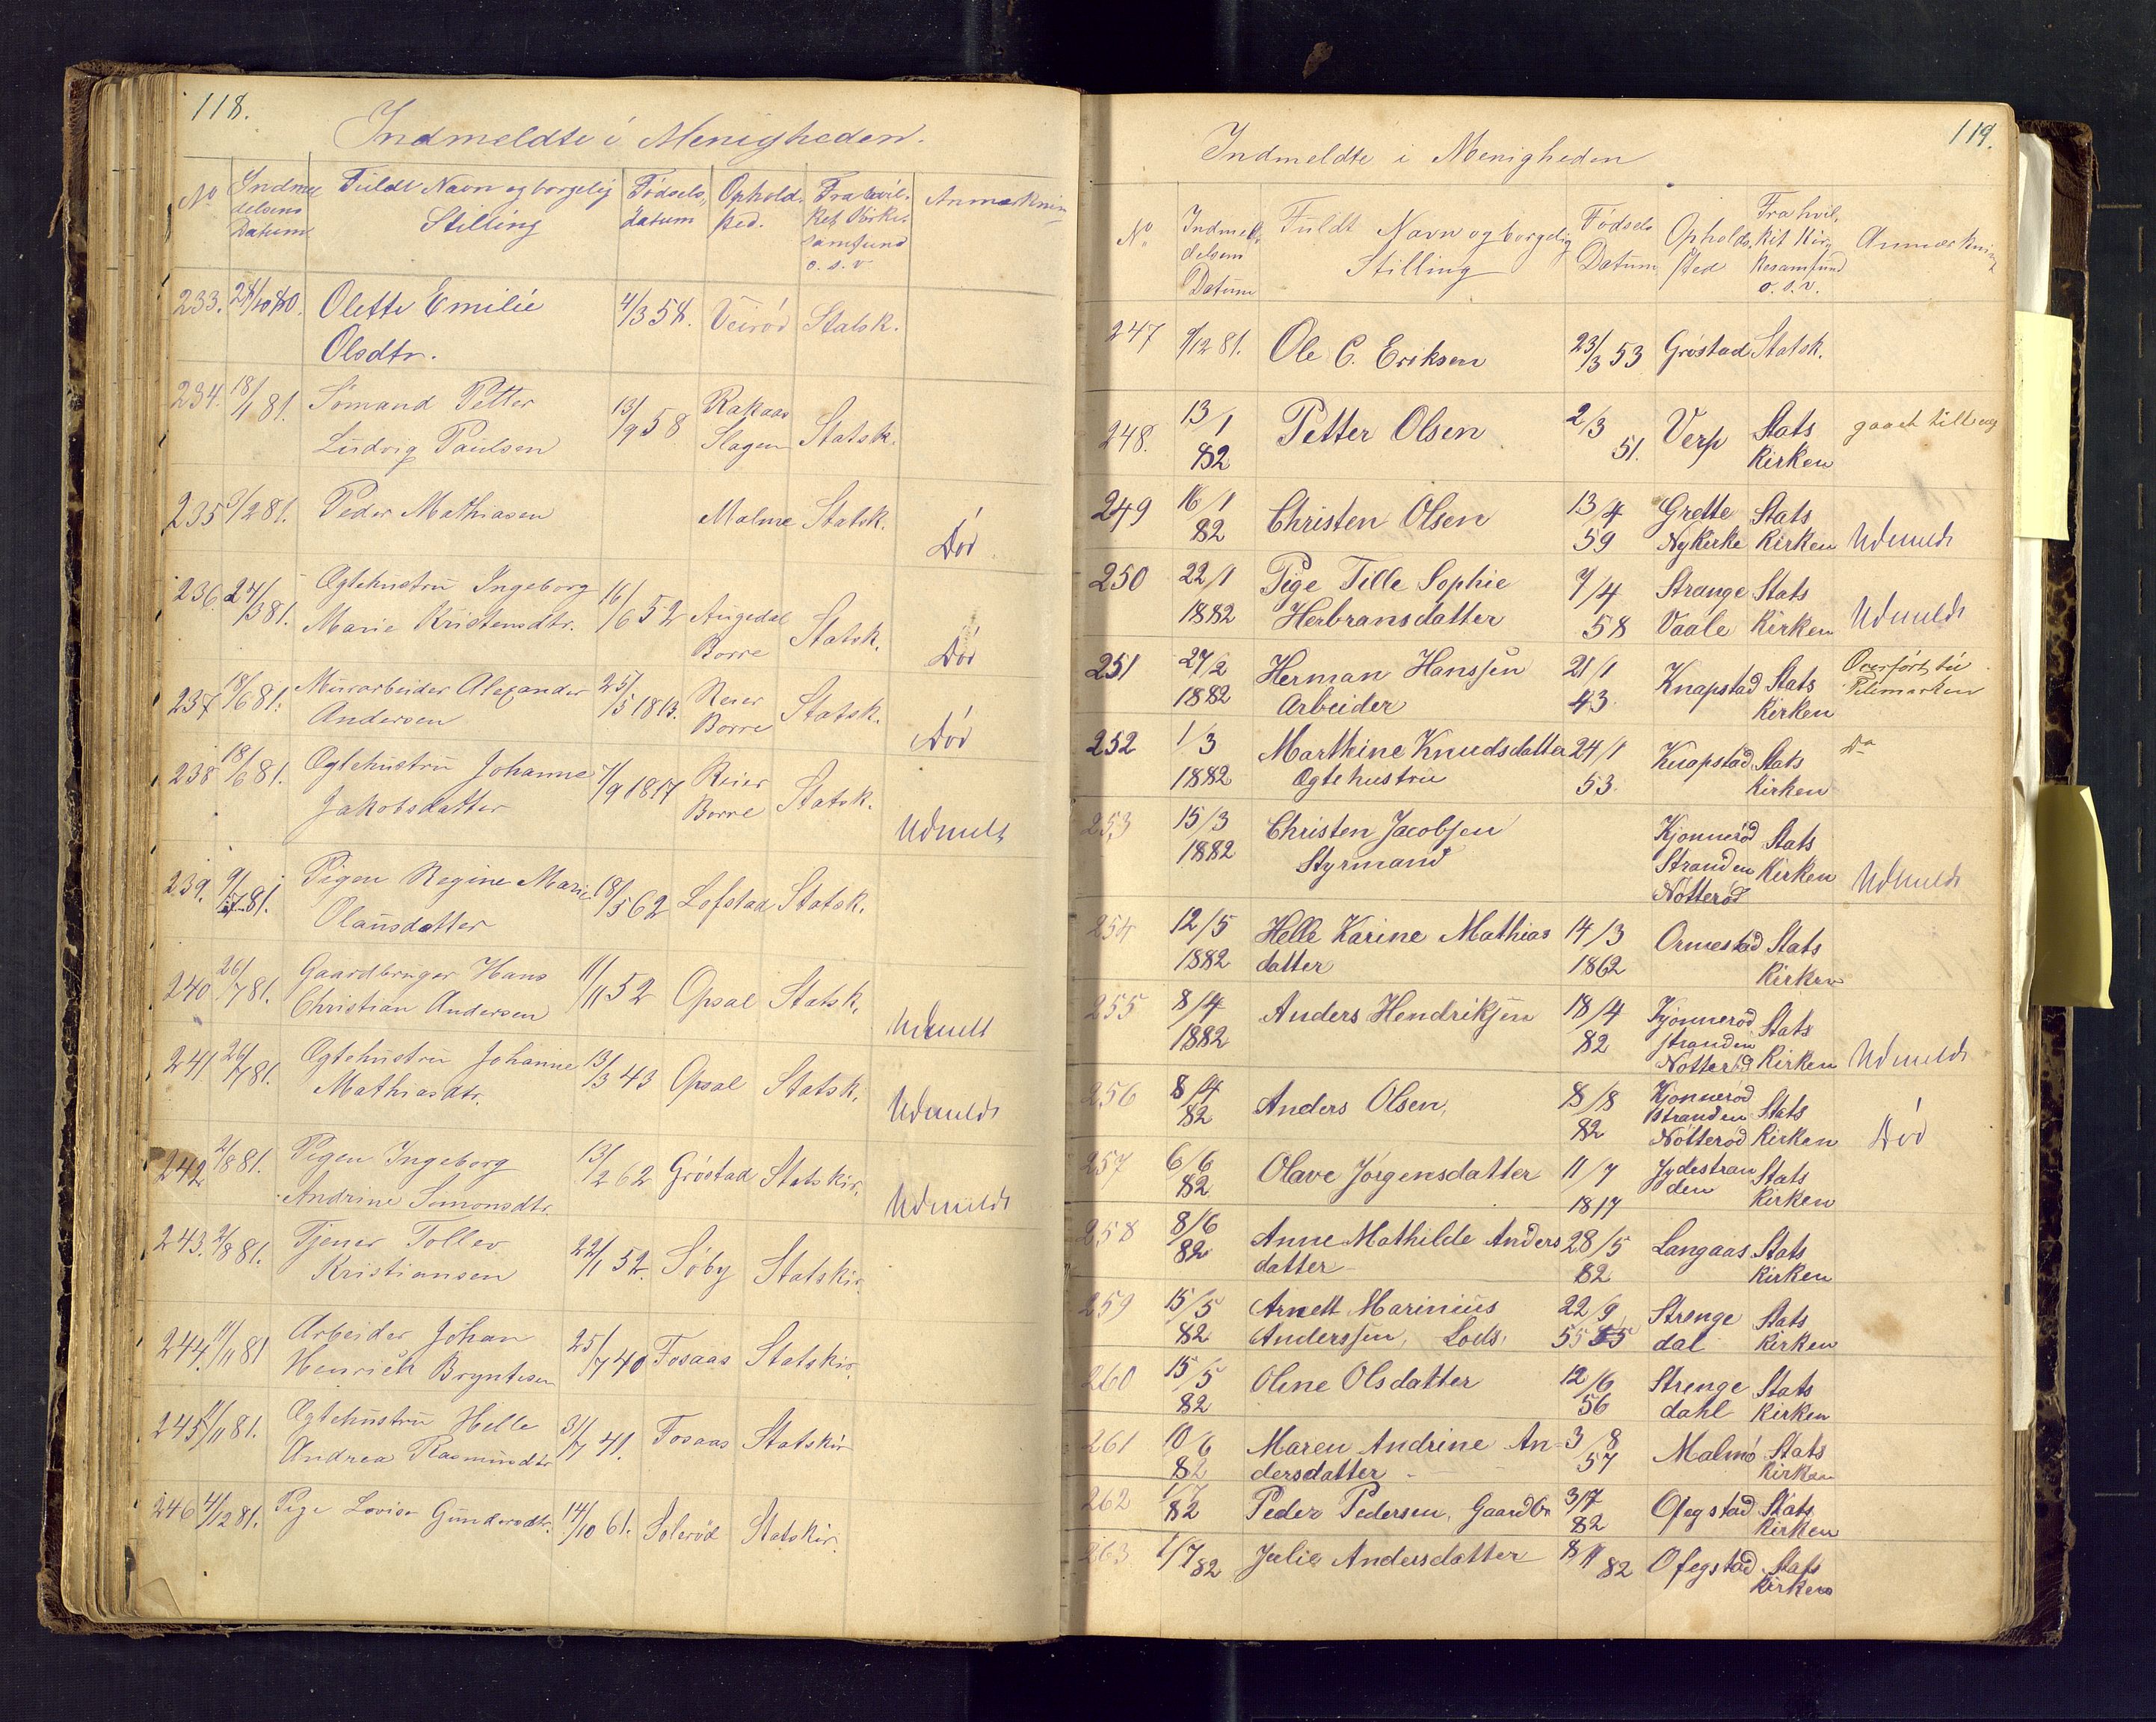 118.
Indmeldte i Menigheden.
No Indmel
delsens
Datum
Fuldt Navn og borgelig
Stilling
Fødsels
datum
Ophold
sted.
Fra hvil-
ket Kirke-
samfund
o. s. v.
Anmærknin
233. 24/10 80. Olette Emilie 4/3 58. Veirød Statsk.
Olsdtr.
234. 18/1 81. Sømand Petter 13/9 58 Rakaas Statsk.
Ludvig Paulsen Slagen
235 3/2 81. Peder Mathiasen Malmø Statsk. Død
236. 24/3 81. Ægtehustru Ingeborg 16/6 52 Augedal Statsk. Død
Marie Kristensdtr. Borre
237 18/6 81. Murarbeider Alexander 25/5 1813. Reier Statsk. Død
Andersen Borre
238 18/6 81. Ægtehustru Johanne 7/9 1817 Reier Statsk. Udmeldt
Jakobsdatter Borre
239. 9/7 81. Pigen Regine Marie 18/5 62 Lofstad Statsk.
Olausdatter
240 26/7 81. Gaardbruger Hans 11/11 52 Opsal Statsk. Udmeldt
Christian Andersen
241. 26/7 81. Ægtehustru Johanne 13/3 43 Opsal Statsk. Udmeldt
Mathiasdtr.
242 2/8 81. Pigen Ingeborg 13/2 62 Grøstad Statskir. Udmeldt
Andrine Simonsdtr.
243. 2/8 81. Tjener Tollev 22/1 52. Søby Statskir.
Kristiansen
244. 11/11 81 Arbeider Johan 25/7 40 Fosaas Statskir.
Henrich Bryntesen
245 11/11 81. Ægtehustru Helle 31/7 41. Fosaas Statskir
Andrea Rasmusdtr
246 4/12 81. Pige Lovise Gundersdtr. 14/10 61. Solerød Statskir.
119.
Indmeldte i Menigheden
No Indmel
delsens
Datum
Fuldt Navn og borgelig
Stilling
Fødsels
Datum
Opholds
sted
Fra hvil,
ket Kir
kesamfund
o. s. v.
Anmærkning
247 9/12 81. Ole C. Eriksen 23/3 53 Grøstad Statsk.
248. 13/1 82 Petter Olsen 2/3 51. Verp Stats gaaet tilbag
Kirken
249 16/1 82 Christen Olsen 13/4 59 Grette Stats
Nykirke Kirken Udmeldt
250 22/1 Pige Tille Sophie 7/4 Strange Stats
1882 Herbransdatter 58 Vaale Kirken Udmeldt
251 27/2 Herman Hanssen 21/1 Knapstad Stats Overført til
1882 Arbeider 43 Kirken
252 1/3 Marthine Knudsdatter 24/1 Knapstad Stats Do
1882 Ægtehustru 53 Kirken
253 15/3 Christen Jacobsen Kjønnerød Stats
1882 Styrmand Stranden Kirken Udmeldt
Nøtterø
254 12/5 Helle Karine Mathias 14/3 Ormestad Stats
1882 datter 1862 Kirken
255 8/4 Anders Hendriksen 18/4 Kjønnerød Stats
1882 82 stranden
Nøtterød Kirken Udmeldt
256 8/4 Anders Olsen, 18/8 Kjønnerød
82 82 Stranden Stats
Nøtterød Kirken Død
257 6/6 Olave Jørgensdatter 11/7 Jydestran Stats
82 1817 den Kirken
258 8/6 Anne Mathilde Anders 28/5 Langaas Stats
82 datter 82 Kirken
259 15/5 Arnett Marinius 22/9 Strenge Stats
82 Anderssen, Lods. 55 dal Kirken
260 15/5 Oline Olsdatter 12/6 Strenge Stats
82 56 dahl Kirken
261 10/6 Maren Andrine An- 3/8 Malmø Stats
82 dersdatter 57 Kirken
262 1/7 Peder Pedersen, Gaardbr 3/7 Ofegstad Stats
82 82 Kirken
263 1/7 82 Julie Andersdatter 82 Ofegstad Stats
Kirken